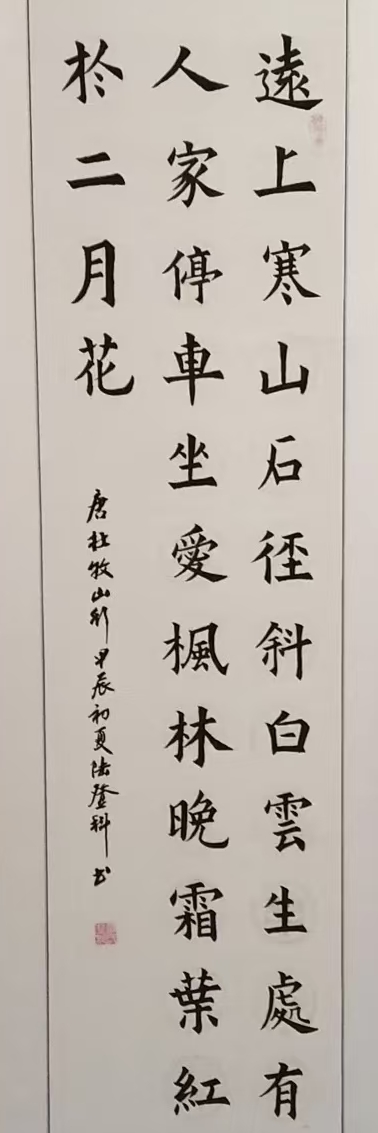 遠上寒山石徑斜白雲生處有
人家停車坐愛楓林晚霜葉紅
於二月花
唐杜牧山行甲辰初夏陆登科书